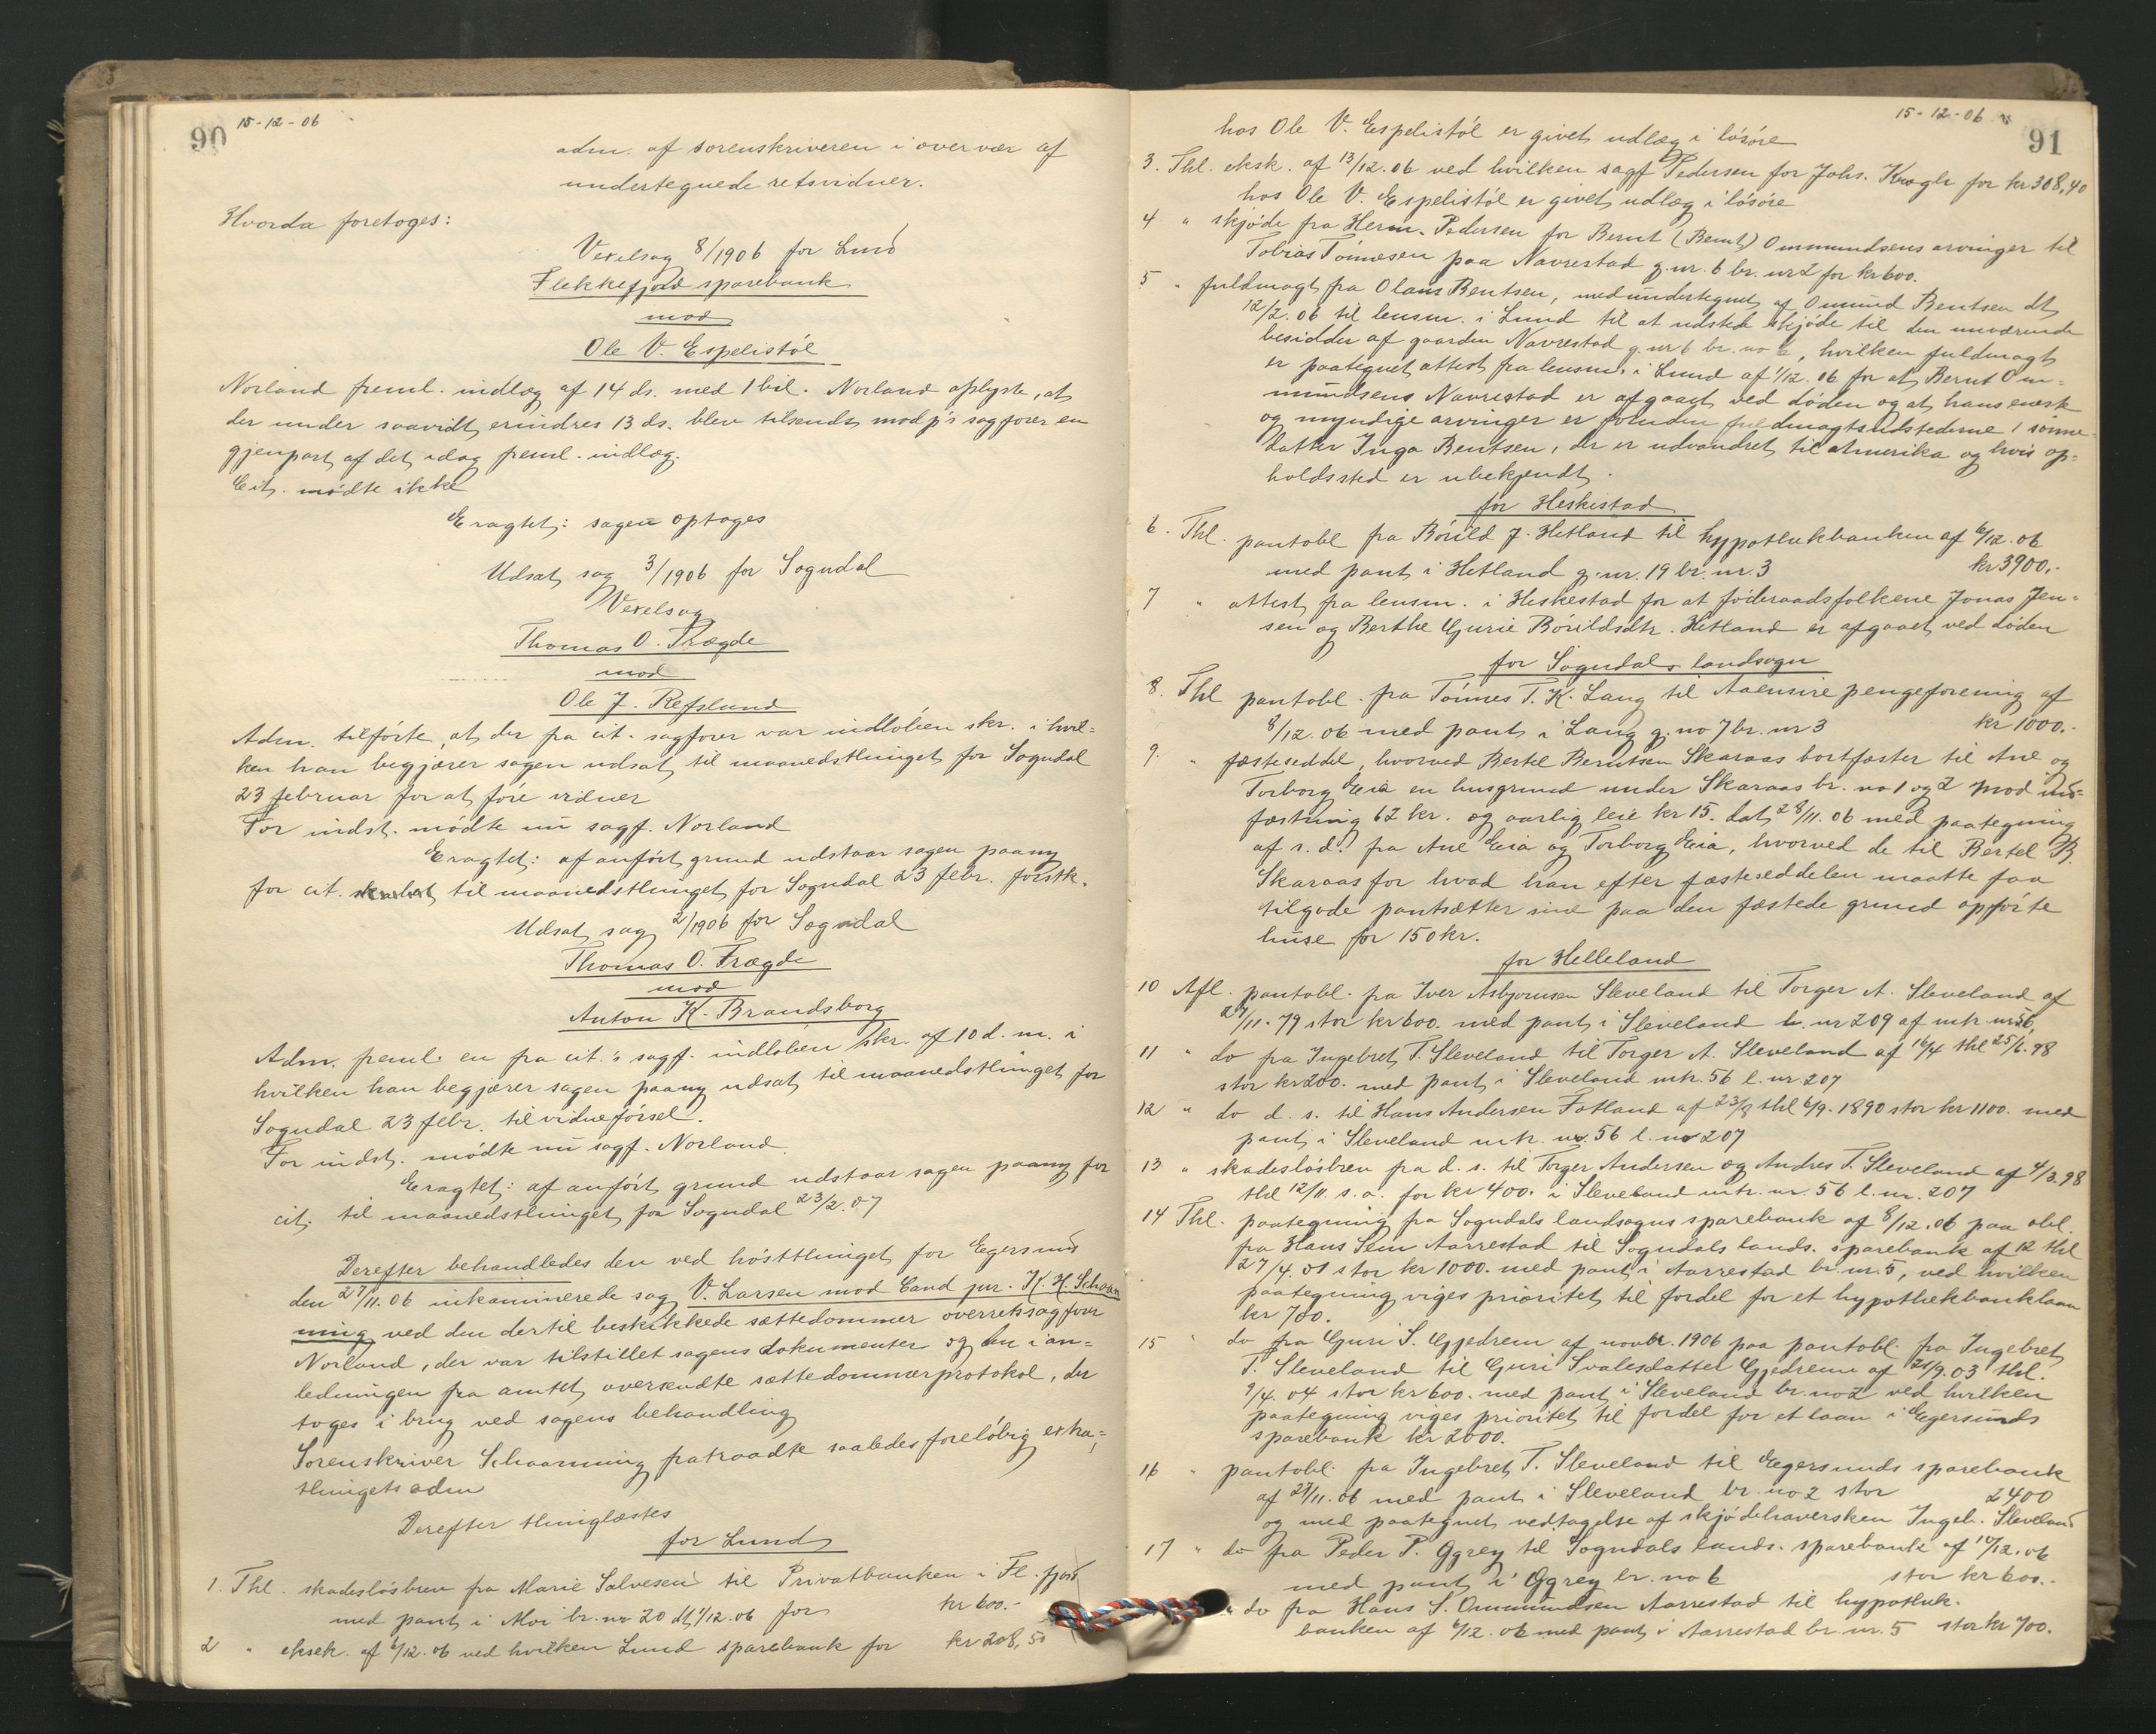 90
15-12-06
adm. af sorenskriveren i overvær af
undertegnede retsvidner.
Hvorda foretoges:
Vexelsag 8/1906 for Lund
Flekkefjord sparebank
mod
Ole V. Espelistöl
Norland freml. indlæg af 14 ds. med 1 bil. Norland oplyste, at
der under saavidt erindres 13 ds. blev tilsendt modp's sagfører en
gjenpart af det idag freml. indlæg.
Cit. mödte ikke
Eragtet: sagen optages
Udsat sag 3/1906 for Sogndal
Vexelsag
Thomas O. Frægde
mod
Ole J. Refsland
Adm. tilförte, at der fra cit. sagfører var indlöben skr. i hvil-
ken han begjærer sagen udsat til maanedsthinget for Sogndal
23 februar for at före vidner
For indst. mödte nu sagf. Norland
Eragtet: af anfört grund udstaar sagen paany
for cit. til maanedsthinget for Sogndal 23 febr. förstk.
Udsat sag 2/1906 for Sogndal
Thomas O. Frægde
mod
Anton K. Brandsborg
Adm. freml. en fra cit.'s sagf. indlöben skr. af 10 d. m. i
hvilken han begjærer sagen paany udsat til maanedsthinget for
Sogndal 23 febr. til vidneförsel.
For indst. mödte nu sagf. Norland.
Eragtet: af anfört grund udstaar sagen paany for
cit. til maanedsthinget for Sogndal 23/2.07
Derefter behandledes den ved hösttinget for Egersund
den 27/11.06 inkaminerede sag V. Larsen mod Cand jur. K. H. Schaan
ning ved den dertil beskikkede sættedommer overretssagfører
Norland, der var tilstillet sagens dokumenter og den i an-
ledningen fra amtet oversendte sættedommerprotokol, der
toges i brug ved sagens behandling
Sorenskriver Schaanning fratraadte saaledes foreløbig extra-
thingets adm
Derefter thinglæstes
for Lund
1. Thl. skadeslösbrev fra Marie Salvesen til Privatbanken i Fl.fjord
med pant i Moi br. no 20 dt 1/12.06 for kr 600.-
2 " eksek. af 6/12.06 ved hvilken Lund sparebank for kr 208,50
15-12-06
91
hos Ole V. Espelistöl er givet udlæg i lösöre
3. Thl. eksk. af 13/12.06 ved hvilken sagf Pedersen for Johs. Krogh for kr 308,40
hos Ole V. Espelistöl er givet udlæg i lösöre
4 " skjöde fra Herm. Pedersen for Bernt (Bernt) Ommundsens arvinger til
Tobias Tönnesen paa Navrestad g.nr. 6 br. nr 2 for kr 600.
5 " fuldmagt fra Olaus Bentsen, medundertegnet af Omund Bentsen dt
12/2.06 til lensm. i Lund til at udstede skjöde til den nuværende
besidder af gaarden Navrestad g.nr 6 br. no 2, hvilken fuldmagt
er paategnet attest fra lensm. i Lund af 1/12.06 for at Bernt Om-
mundsens Navrestad er afgaaet ved döden og at hans eneste
og myndige arvinger er foruden fuldmagtsudstederne 1 sönne-
datter Inga Bentsen, der er udvandret til Amerika og hvis op-
holdssted er ubekjendt.
for Heskestad
6. Thl. pantobl fra Börild J. Hetland til hypothekbanken af 6/12.06
med pant i Hetland g.nr. 19 br. nr. 3 kr 3900.-
7 " attest fra lensm. i Heskestad for at föderaadsfolkene Jonas Jen-
sen og Berthe Gurie Börildsdtr. Hetland er afgaaet ved döden
for Sogndals landsogn
8. Thl pantobl. fra Tönnes T. K. Lang til Aaensire pengeforening af
8/12.06 med pant i Lang g.no 7 br. nr 3 kr 1000.-
9. " fæsteseddel, hvorved Bertel Berntsen Skaraas bortfæster til Ane og
Torborg Eia en husgrund under Skaraas br. no 1 og 2 mod ind-
fæstning 62 kr. og aarlig leie kr 15. dat 28/11.06 med paategning
af s. d. fra Ane Eia og Torborg Eia, hvorved de til Bertel B.
Skaraas for hvad han efter fæsteseddelen maatte faa
tilgode pantsætter sine paa den fæstede grund opförte
huse for 150 kr.
for Helleland
10 Afl. pantobl. fra Iver Asbjornsen Sleveland til Torger A. Sleveland af
27/11.79 stor kr 600. med pant i Sleveland l. nr 209 af mtr. nr 56
11 " do fra Ingebret T. Sleveland til Torger A. Sleveland af 16/4 thl 25/6.98
stor kr 200. med pant i Sleveland mtr. 56 l. nr 207
12 " do d. s. til Hans Andersen Fotland af 23/8 thl 6/9.1890 stor kr 1100. med
pant i Sleveland mtr. nr. 56 l. no 207
13 " skadeslösbrev fra d. s. til Torger Andersen og Andres T. Sleveland af 4/3.98
thl 12/11 s. a. for kr 400. i Sleveland mtr. nr. 56 l. nr. 207
14 Thl. paategning fra Sogndals landsogns sparebank af 8/12.06 paa obl.
fra Hans Sein Aarrestad til Sogndals lands. sparebank af 12 thl
27/4.01 stor kr 1000. med pant i Aarrestad br. nr. 5, ved hvilken
paategning viges prioritet til fordel for et hypothekbanklaan
kr 700.
15 " do fra Guri S. Gjedrem af novbr. 1906 paa pantobl. fra Ingebret
T. Sleveland til Guri Svalesdatter Gjedrem af 21/9.03 thl.
9/4.04 stor kr 600. med pant i Sleveland br. no 2 ved hvilken
paategning viges prioritet til fordel for et laan i Egersunds
sparebank kr 2000.
16 " pantobl. fra Ingebret T. Sleveland til Egersunds sparebank
af 27/11.06 med pant i Sleveland br. no 2 stor 2400
og med paategnet vedtagelse af skjödehaversken Ingeb. Sleveland
17 " do fra Peder P. Ggrey til Sogndals lands. sparebank af 10/12.06
med pant i Ggrey br. no 6 stor kr 600.-
" do fra Hans S. Ommundsen Aarrestad til hypothek-
banken af 6/12.06 med pant i Aarrestad br. nr. 5 stor kr 700.